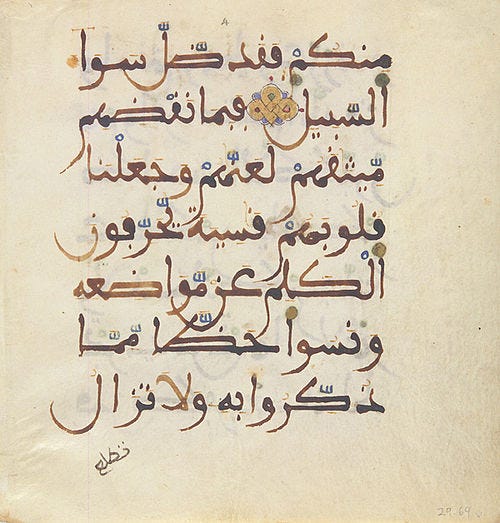 4
منكم فقد ضل سوا
السبيل فبما نقضهم
ميثقهم لعنهم وجعلنا
قلوبهم قسية يحرفون
الكلم عن مواضعه
ونسوا حظا مما
ذكروا به ولا تزال
تطلع